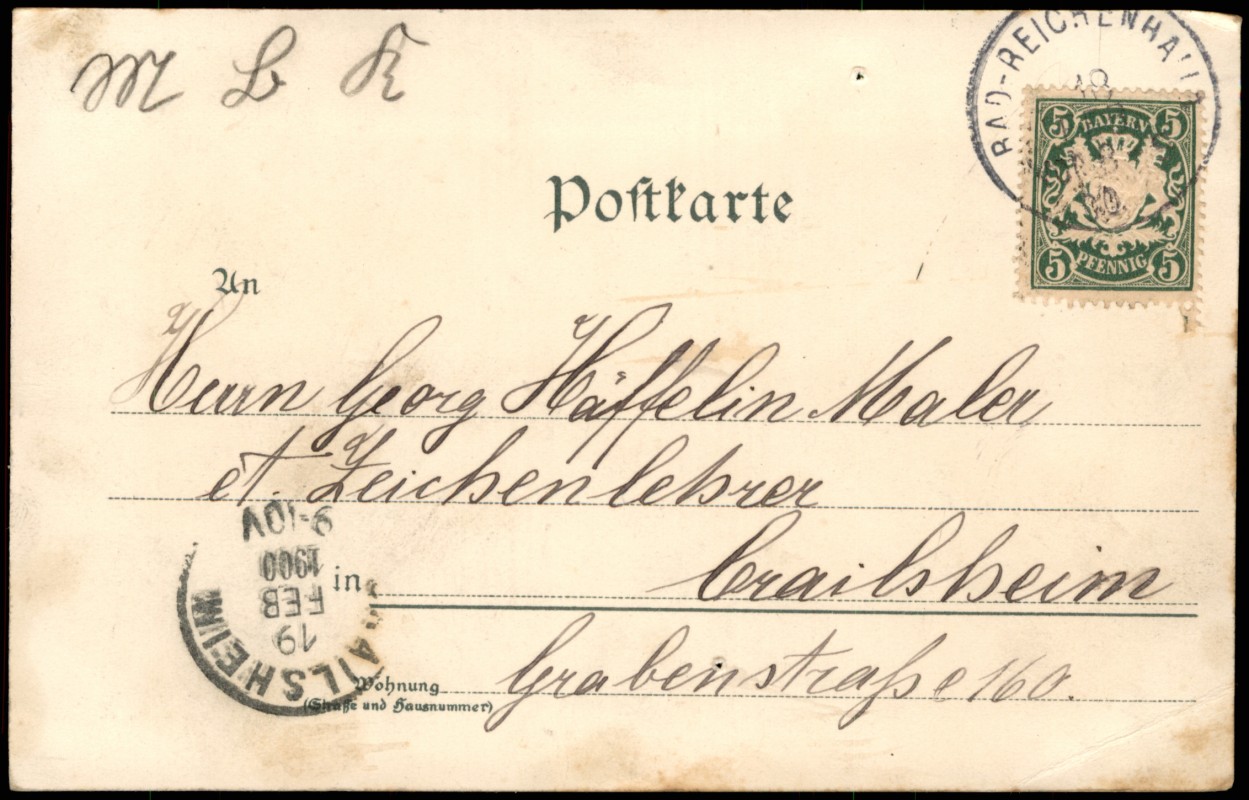 M L K
BAD-REICHENHALL
18
5 BAYERN 5
5 PFENNIG 5
Postkarte
An
Herrn Georg Häffelin Maler
et. Zeichenlehrer
in Crailsheim
Wohnung Grabenstraße 160.
(Straße und Hausnummer)
CRAILSHEIM
19
FEB
1900
9-10V